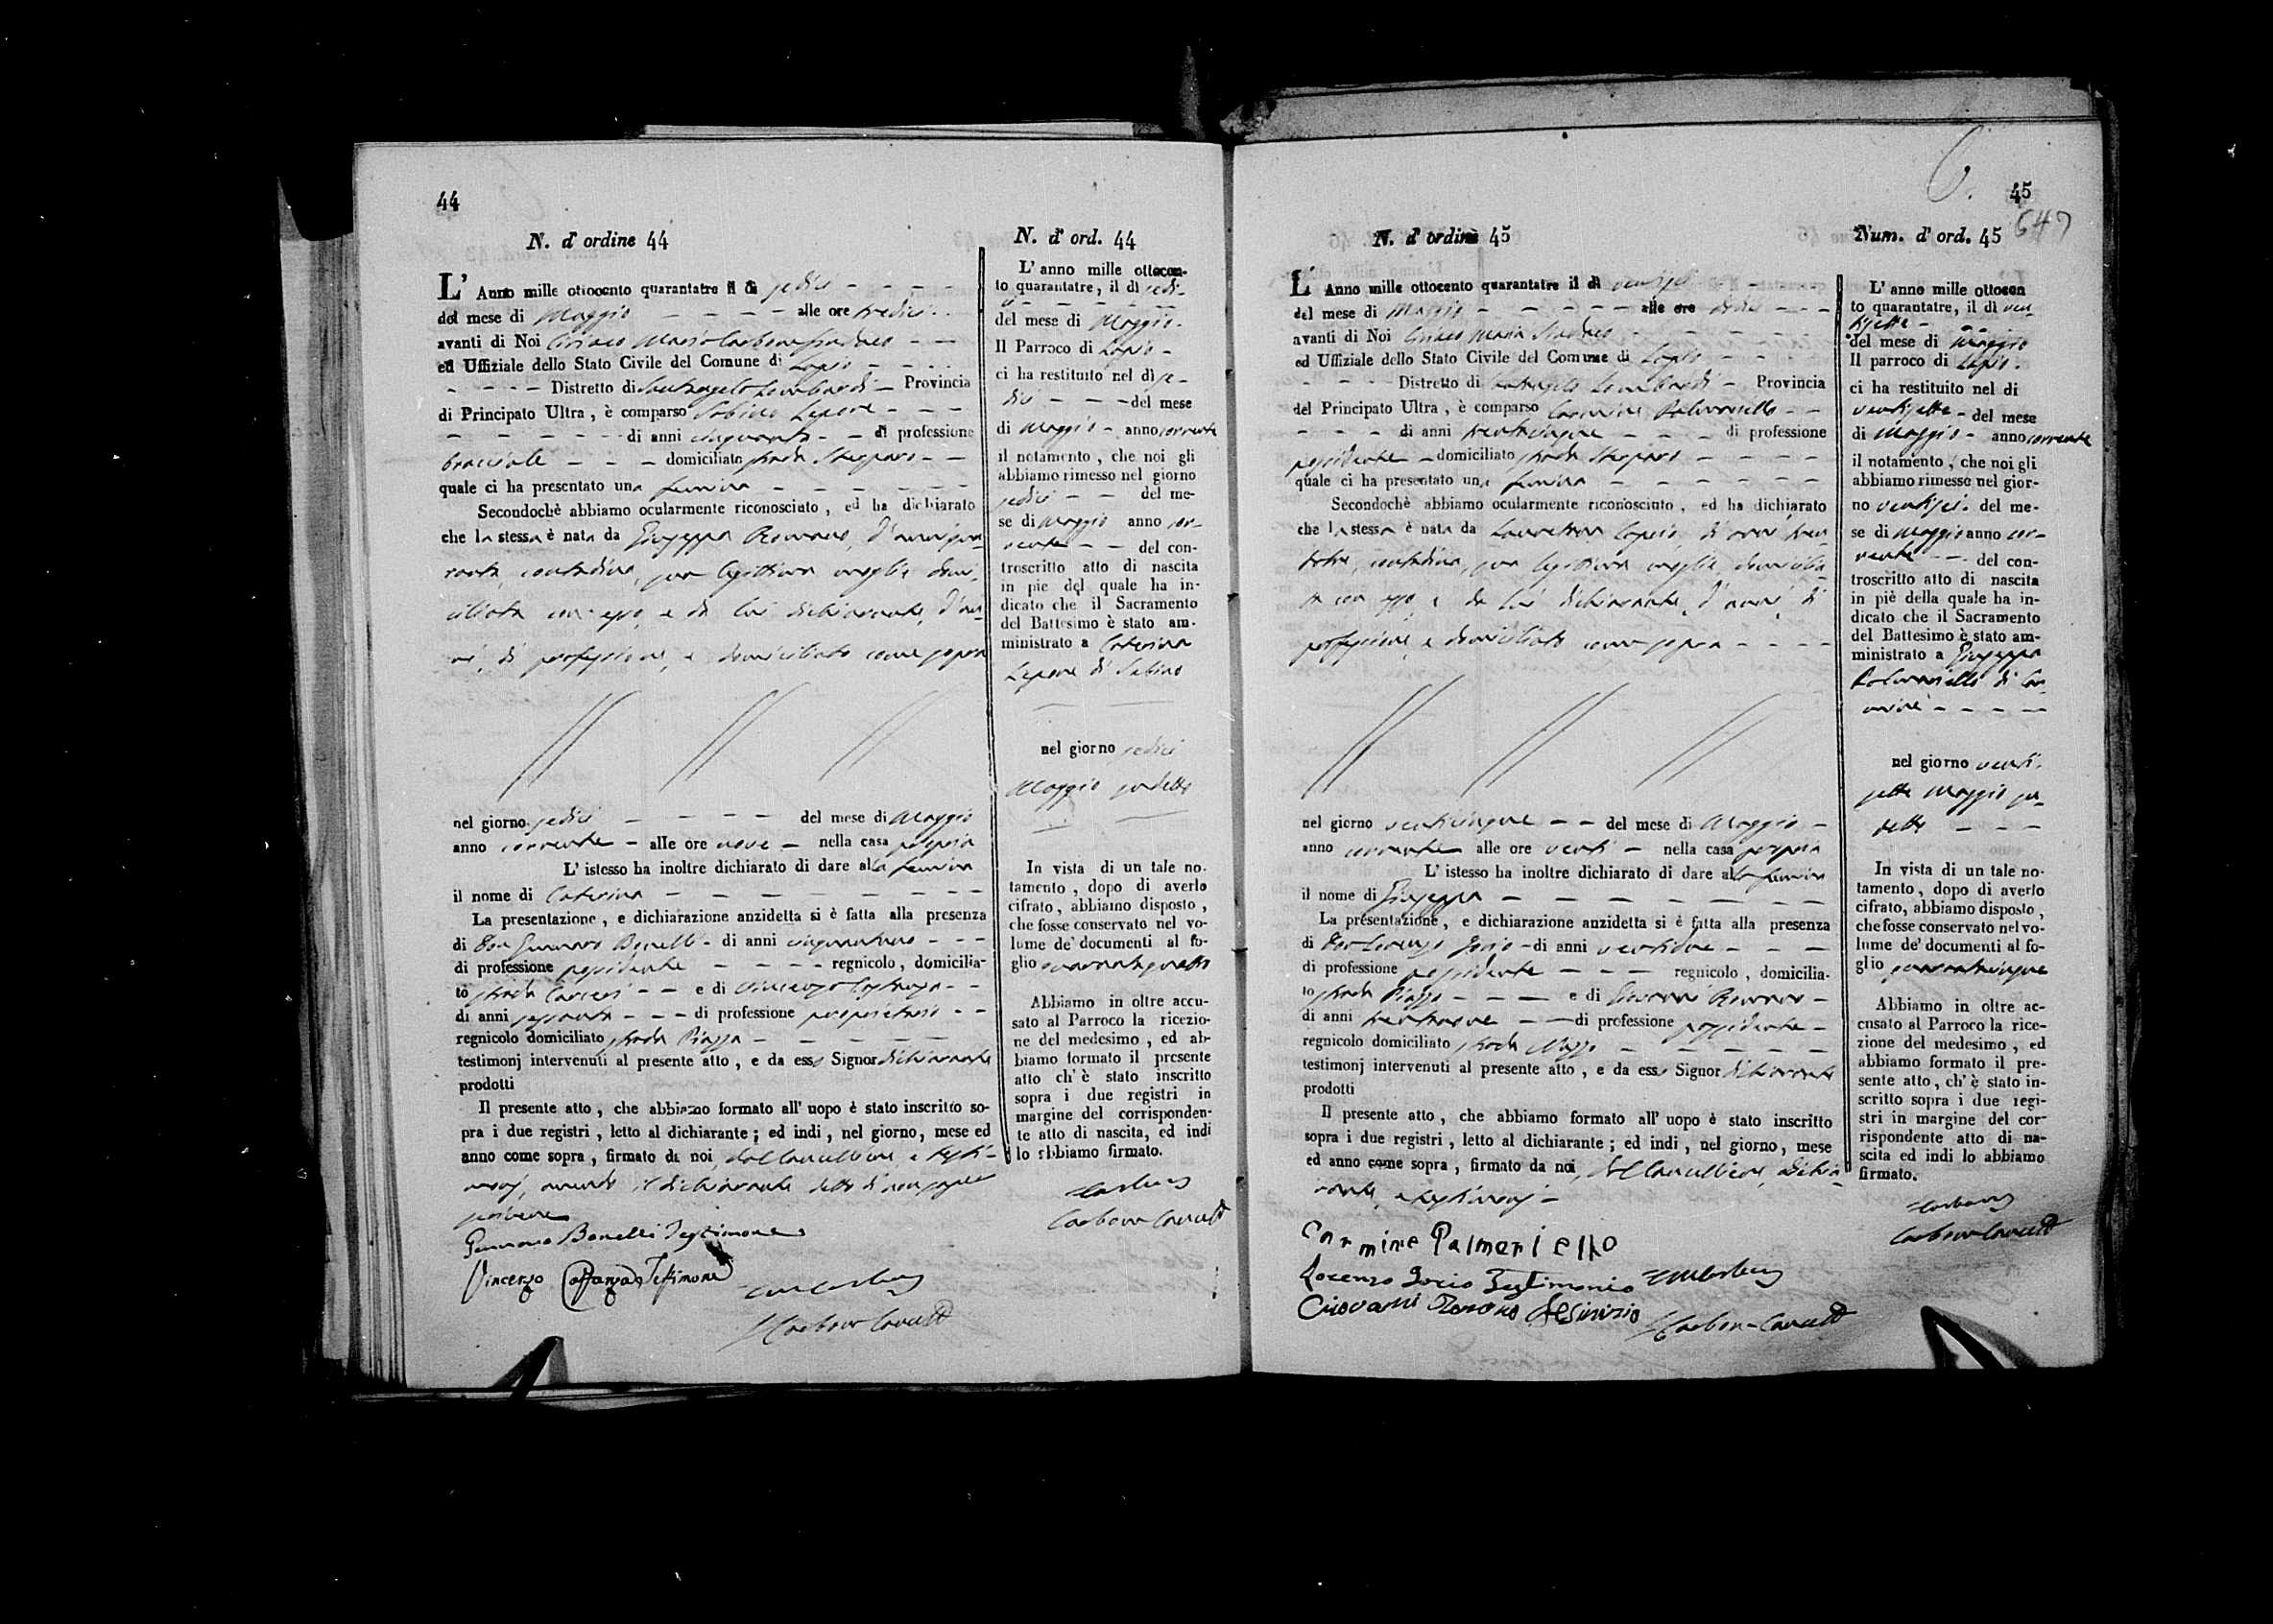 44
N. d' ordine 44
L' Anno mille ottocento quarantatre il di sedici
del mese di Maggio alle ore tredici
avanti di Noi Ciriaco Maria Carbone Sindaco
ed Uffiziale dello Stato Civile del Comune di Lapio
Distretto di Santangelo Lombardi Provincia
di Principato Ultra, è comparso Sabino Lepore
di anni cinquanta di professione
bracciale domiciliato strada
quale ci ha presentato una femina
Secondochè abbiamo ocularmente riconosciuto, ed ha dichiarato
che la stessa è nata da Giuseppa Romano, d'anni qua-
ranta, contadina, sua legittima moglie domi-
ciliata con esso, e da lui dichiarante, d'an-
ni, di professione, e domiciliato come sopra
nel giorno sedici del mese di Maggio
anno corrente alle ore nove nella casa propria
L' istesso ha inoltre dichiarato di dare alla femina
il nome di Caterina
La presentazione, e dichiarazione anzidetta si è fatta alla presenza
di Don Gennaro Bonelli di anni
di professione possidente regnicolo, domicilia-
to strada Carceri e di Vincenzo
di anni sessanta di professione proprietario
regnicolo domiciliato strada Piazza
testimonj intervenuti al presente atto, e da esso Signor dichiarante
prodotti
Il presente atto, che abbiamo formato all' uopo è stato inscritto so-
pra i due registri, letto al dichiarante; ed indi, nel giorno, mese ed
anno come sopra, firmato da noi, dal Cancelliere, e testi-
monj, avendo il dichiarante detto di non sapere
scrivere
Gennaro Bonelli Testimone
Vincenzo Testimone
N. d' ord. 44
L' anno mille ottocen-
to quarantatre, il di sedi-
ci
del mese di Maggio
Il Parroco di Lapio
ci ha restituito nel di se-
dici del mese
di Maggio anno corrente
il notamento, che noi gli
abbiamo rimesso nel giorno
sedici del me-
se di Maggio anno cor-
rente del con-
troscritto atto di nascita
in piè del quale ha in-
dicato che il Sacramento
del Battesimo è stato am-
ministrato a Caterina
Lepore di Sabino
nel giorno sedici
Maggio sudetto
In vista di un tale no-
tamento, dopo di averlo
cifrato, abbiamo disposto,
che fosse conservato nel vo-
lume de' documenti al fo-
glio quarantaquattro
Abbiamo in oltre accu-
sato al Parroco la ricezio-
ne del medesimo, ed ab-
biamo formato il presente
atto ch' è stato inscritto
sopra i due registri in
margine del corrisponden-
te atto di nascita, ed indi
lo abbiamo firmato.
45
647
N. d' ordine 45
L' Anno mille ottocento quarantatre il di ventisei
del mese di Maggio alle ore
avanti di Noi Ciriaco Maria Sindaco
ed Uffiziale dello Stato Civile del Comune di Lapio
Distretto di Santangelo Lombardi Provincia
del Principato Ultra, è comparso Carmine Palmariello
di anni trentacinque di professione
possidente domiciliato strada
quale ci ha presentato una femina
Secondochè abbiamo ocularmente riconosciuto, ed ha dichiarato
che la stessa è nata da di anni tren-
contadina, sua legittima moglie domicilia-
ta con esso, e da lui dichiarante, d'anni, di
professione, e domiciliato come sopra
nel giorno venticinque del mese di Maggio
anno corrente alle ore venti nella casa propria
L' istesso ha inoltre dichiarato di dare alla femina
il nome di Giuseppa
La présentazione, e dichiarazione anzidetta si è fatta alla presenza
di Don Lorenzo di anni ventidue
di professione possidente regnicolo, domicilia-
to strada Piazza e di Giovanni Romano
di anni trentanove di professione possidente
regnicolo domiciliato strada
testimonj intervenuti al presente atto, e da esso Signor dichiarante
prodotti
Il presente atto, che abbiamo formato all' uopo è stato inscritto
sopra i due registri, letto al dichiarante; ed indi, nel giorno, mese
ed anno come sopra, firmato da noi, dal Cancelliere, dichia-
rante, e testimonj
Carmine Palmariello
Lorenzo Testimonio
Giovanni Romano
Num. d' ord. 45
L' anno mille ottocen
to quarantatre, il di ven-
tisette
del mese di Maggio
Il parroco di Lapio.
ci ha restituito nel di
ventisette del mese
di Maggio anno corrente
il notamento, che noi gli
abbiamo rimesso nel gior-
no ventisei del me-
se di Maggio anno cor-
rente del con-
troscritto atto di nascita
in piè della quale ha in-
dicato che il Sacramento
del Battesimo è stato am-
ministrato a Giuseppa
Palmariello di Car-
mine
nel giorno venti-
sette Maggio su-
detto
In vista di un tale no-
tamento, dopo di averlo
cifrato, abbiamo disposto,
che fosse conservato nel vo-
lume de' documenti al fo-
glio quarantacinque
Abbiamo in oltre ac-
cusato al Parroco la rice-
zione del medesimo, ed
abbiamo formato il pre-
sente atto, ch' è stato in-
scritto sopra i due regi-
stri in margine del cor-
rispondente atto di na-
scita ed indi lo abbiamo
firmato.